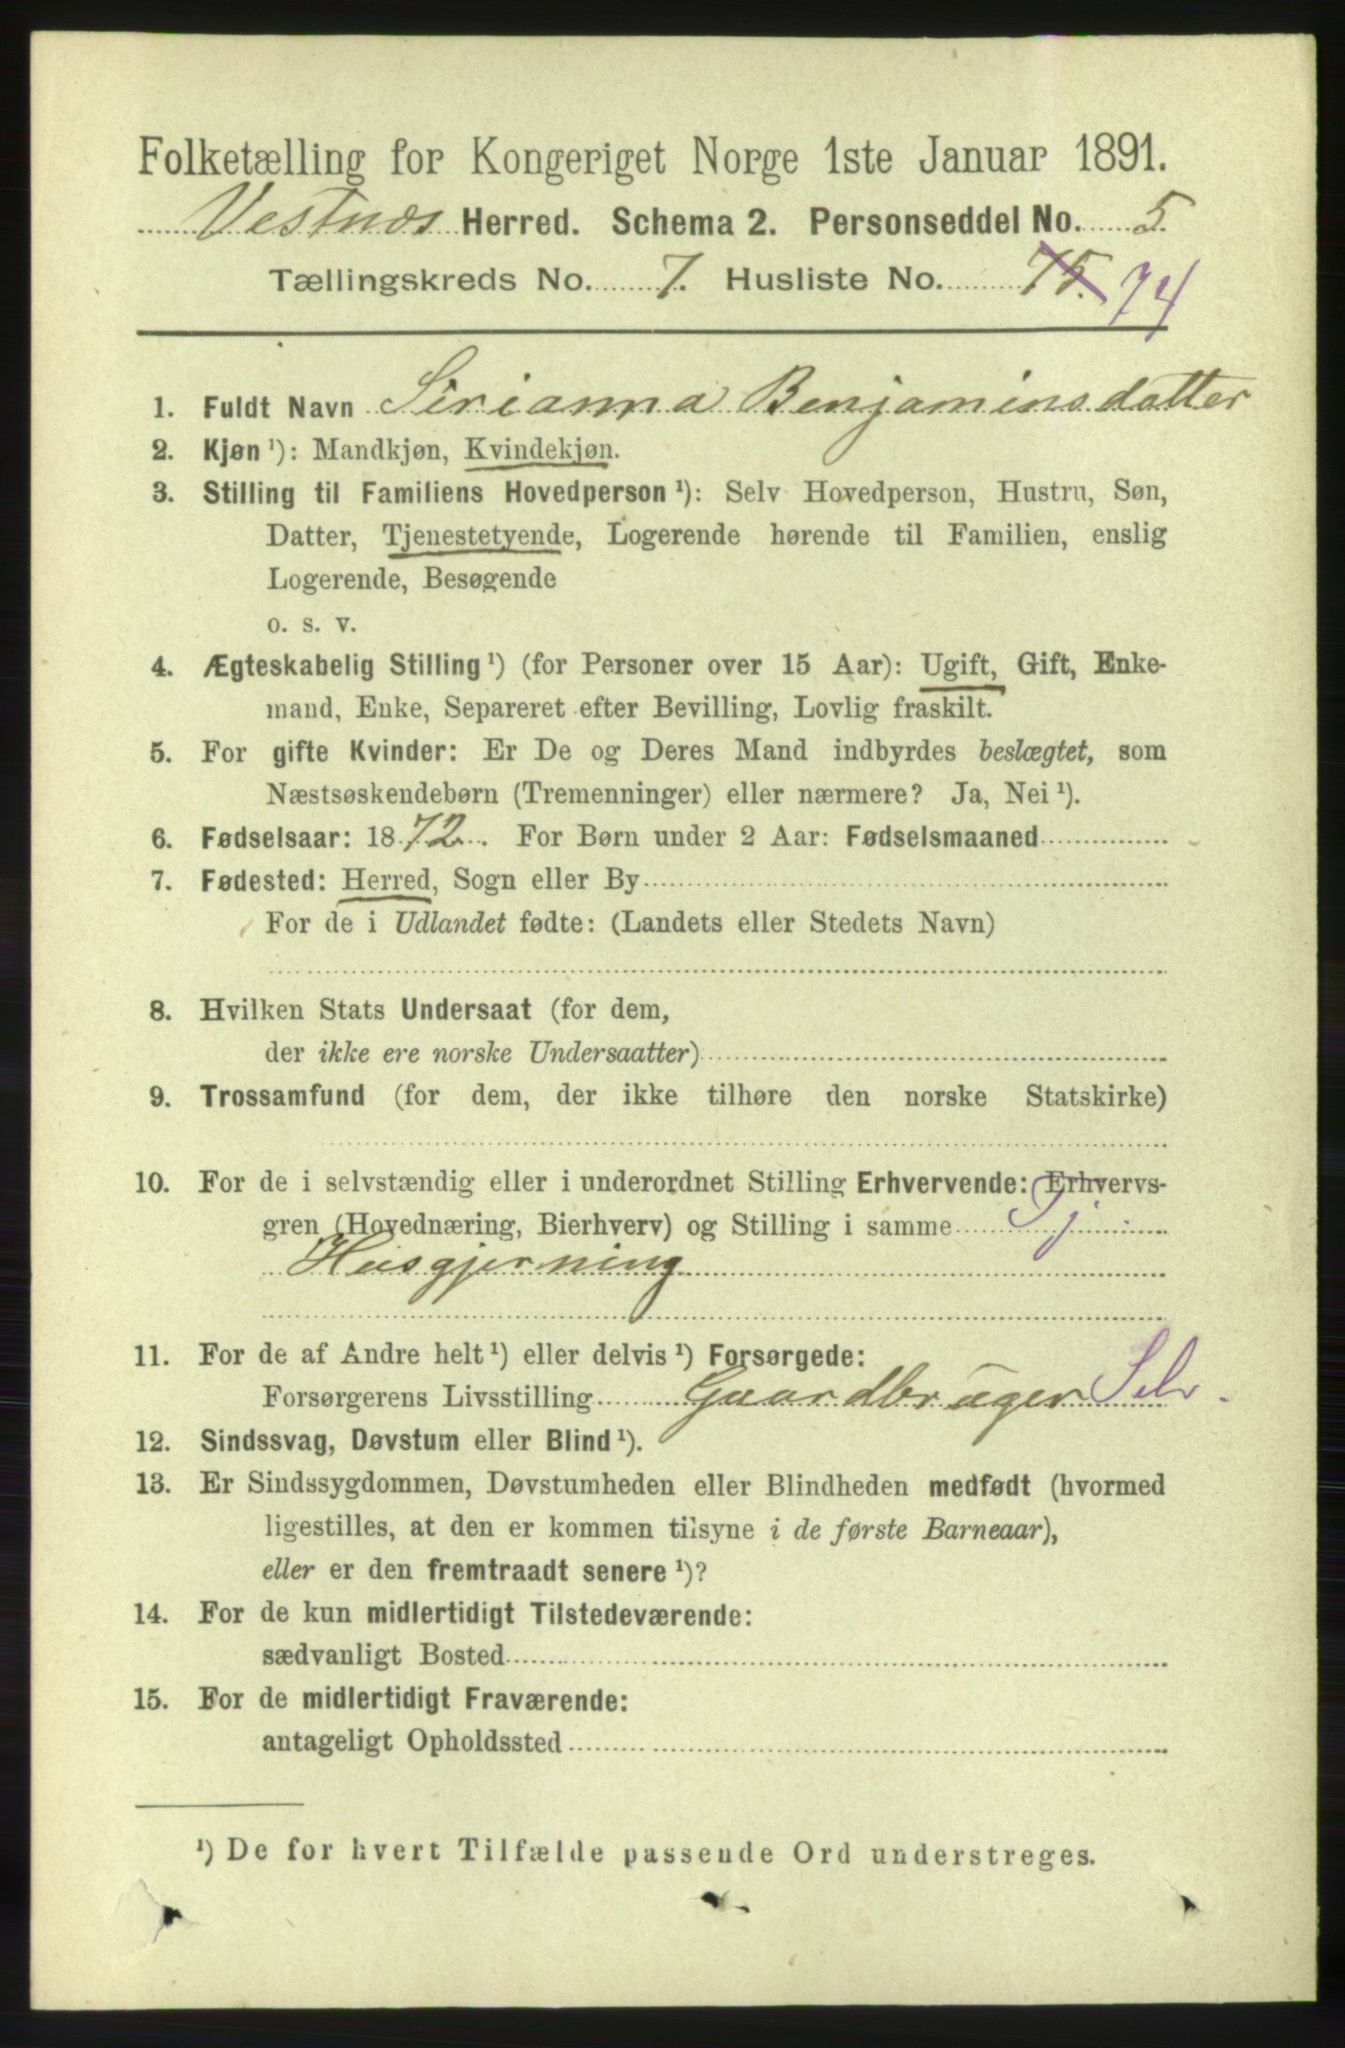 Folketælling for Kongeriget Norge 1ste Januar 1891.
Vestnæs Herred. Schema 2. Personseddel No. 5
Tællingskreds No. 7. Husliste No. 75. 74
1. Fuldt Navn Sirianna Benjaminsdatter
2. Kjøn ¹): Mandkjøn, Kvindekjøn.
3. Stilling til Familiens Hovedperson ¹): Selv Hovedperson, Hustru, Søn,
Datter, Tjenestetyende, Logerende hørende til Familien, enslig
Logerende, Besøgende
o. s. v.
4. Ægteskabelig Stilling ¹) (for Personer over 15 Aar): Ugift, Gift, Enke-
mand, Enke, Separeret efter Bevilling, Lovlig fraskilt.
5. For gifte Kvinder: Er De og Deres Mand indbyrdes beslægtet, som
Næstsøskendebørn (Tremenninger) eller nærmere? Ja, Nei ¹).
6. Fødselsaar: 1872. For Børn under 2 Aar: Fødselsmaaned
7. Fødested: Herred, Sogn eller By
For de i Udlandet fødte: (Landets eller Stedets Navn)
8. Hvilken Stats Undersaat (for dem,
der ikke ere norske Undersaatter)
9. Trossamfund (for dem, der ikke tilhøre den norske Statskirke)
10. For de i selvstændig eller i underordnet Stilling Erhvervende: Erhvervs-
gren (Hovednæring, Bierhverv) og Stilling i samme Tj
Husgjerning
11. For de af Andre helt ¹) eller delvis ¹) Forsørgede:
Forsørgerens Livsstilling Gaardbruger Selv.
12. Sindssvag, Døvstum eller Blind ¹).
13. Er Sindssygdommen, Døvstumheden eller Blindheden medfødt (hvormed
ligestilles, at den er kommen tilsyne i de første Barneaar),
eller er den fremtraadt senere ¹)?
14. For de kun midlertidigt Tilstedeværende:
sædvanligt Bosted
15. For de midlertidigt Fraværende:
antageligt Opholdssted
¹) De for hvert Tilfælde passende Ord understreges.